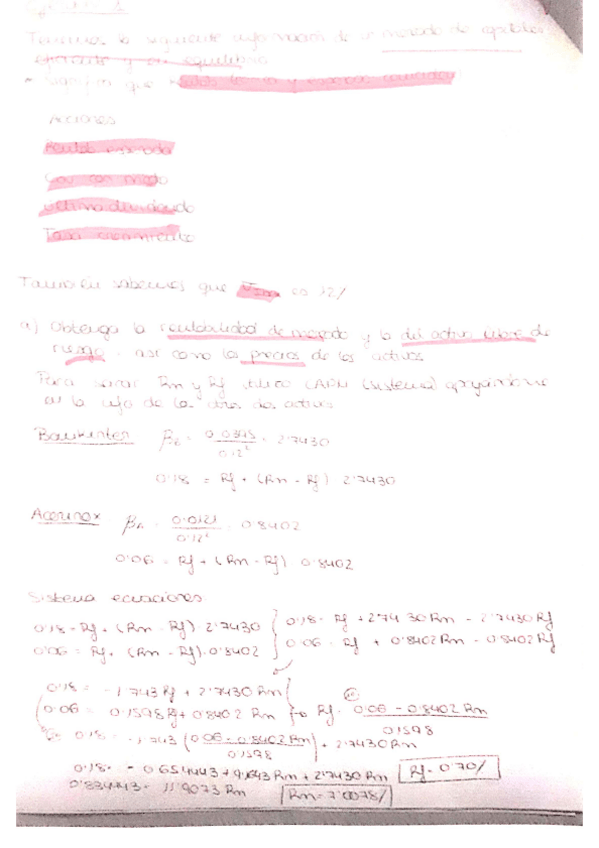 Ejercicio 1
Tenemos la siguiente información de un mercado de capitales
eficiente y en equilibrio
significa que y esperada coinciden
Acciones
Rentab esperada
Cov con mdo
Último dividendo
Tasa crecimiento
También sabemos que es 12%
a) Obtenga la rentabilidad de mercado y la del activo libre de
riesgo. así como los precios de los activos
Para sacar Rm y Rf utilizo CAPM (sistema) apoyándome
en la info de los otros dos activos
Bankinter β = 0'0395 / 0'12² = 2'7430
0'18 = Rf + (Rm - Rf) 2'7430
Acerinox βA = 0'0121 / 0'12² = 0'8402
0'06 = Rf + (Rm - Rf) 0'8402
Sistema ecuaciones
0'18 = Rf + (Rm - Rf) · 2'7430 } 0'18 = Rf + 2'7430 Rm - 2'7430 Rf
0'06 = Rf + (Rm - Rf) · 0'8402 } 0'06 = Rf + 0'8402 Rm - 0'8402 Rf
0'18 = -1'743 Rf + 2'7430 Rm
0'06 = 0'1598 Rf + 0'8402 Rm → Rf = 0'06 - 0'8402 Rm / 0'1598
0'18 = -1'743 (0'06 - 0'8402 Rm / 0'1598) + 2'7430 Rm
0'18 = -0'654443 + 9'1643 Rm + 2'7430 Rm Rf = 0'70%
0'834443 = 11'9073 Rm Rm = 7'0078%